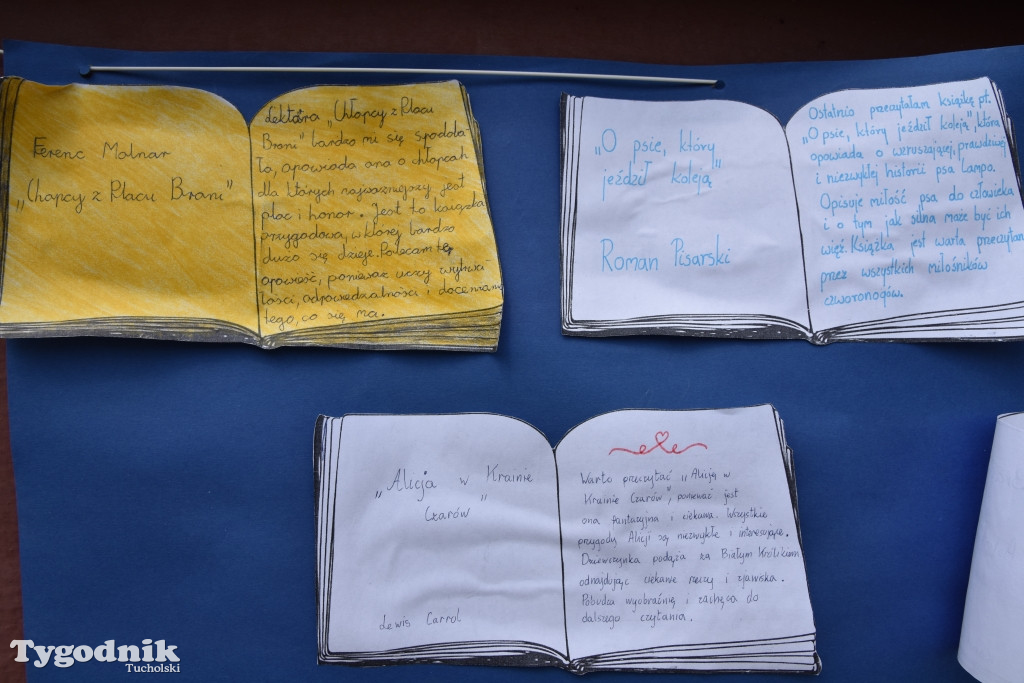 Ferenc Molnar
„Chłopcy z Placu Broni"
Lektura „Chłopcy z Placu
Broni" bardzo mi się spodoba-
ło, opowiada ona o chłopcach
dla których najważniejszy jest
plac i honor. Jest to książka
przygodowa, w której bardzo
dużo się dzieje. Polecam tę
opowieść, ponieważ uczy wytrwa-
łości, odpowiedzialności i doceniania
tego, co się ma.
„O psie, który
jeździł koleją"
Roman Pisarski
Ostatnio przeczytałam książkę pt.
„O psie, który jeździł koleją", która
opowiada o wzruszającej, prawdziwej
i niezwykłej historii psa Lampo.
Opisuje miłość psa do człowieka
i o tym jak silna może być ich
więź. Książka jest warta przeczytania
przez wszystkich miłośników
czworonogów.
„Alicja w Krainie
Czarów"
Lewis Carrol
Warto przeczytać „Alicję w
Krainie Czarów", ponieważ jest
ona fantazyjna i ciekawa. Wszystkie
przygody Alicji są niezwykłe i interesujące.
Dziewczynka podąża za Białym Królikiem
odnajdując ciekawe rzeczy i zjawiska.
Pobudza wyobraźnię i zachęca do
dalszego czytania.
Tygodnik
Tucholski